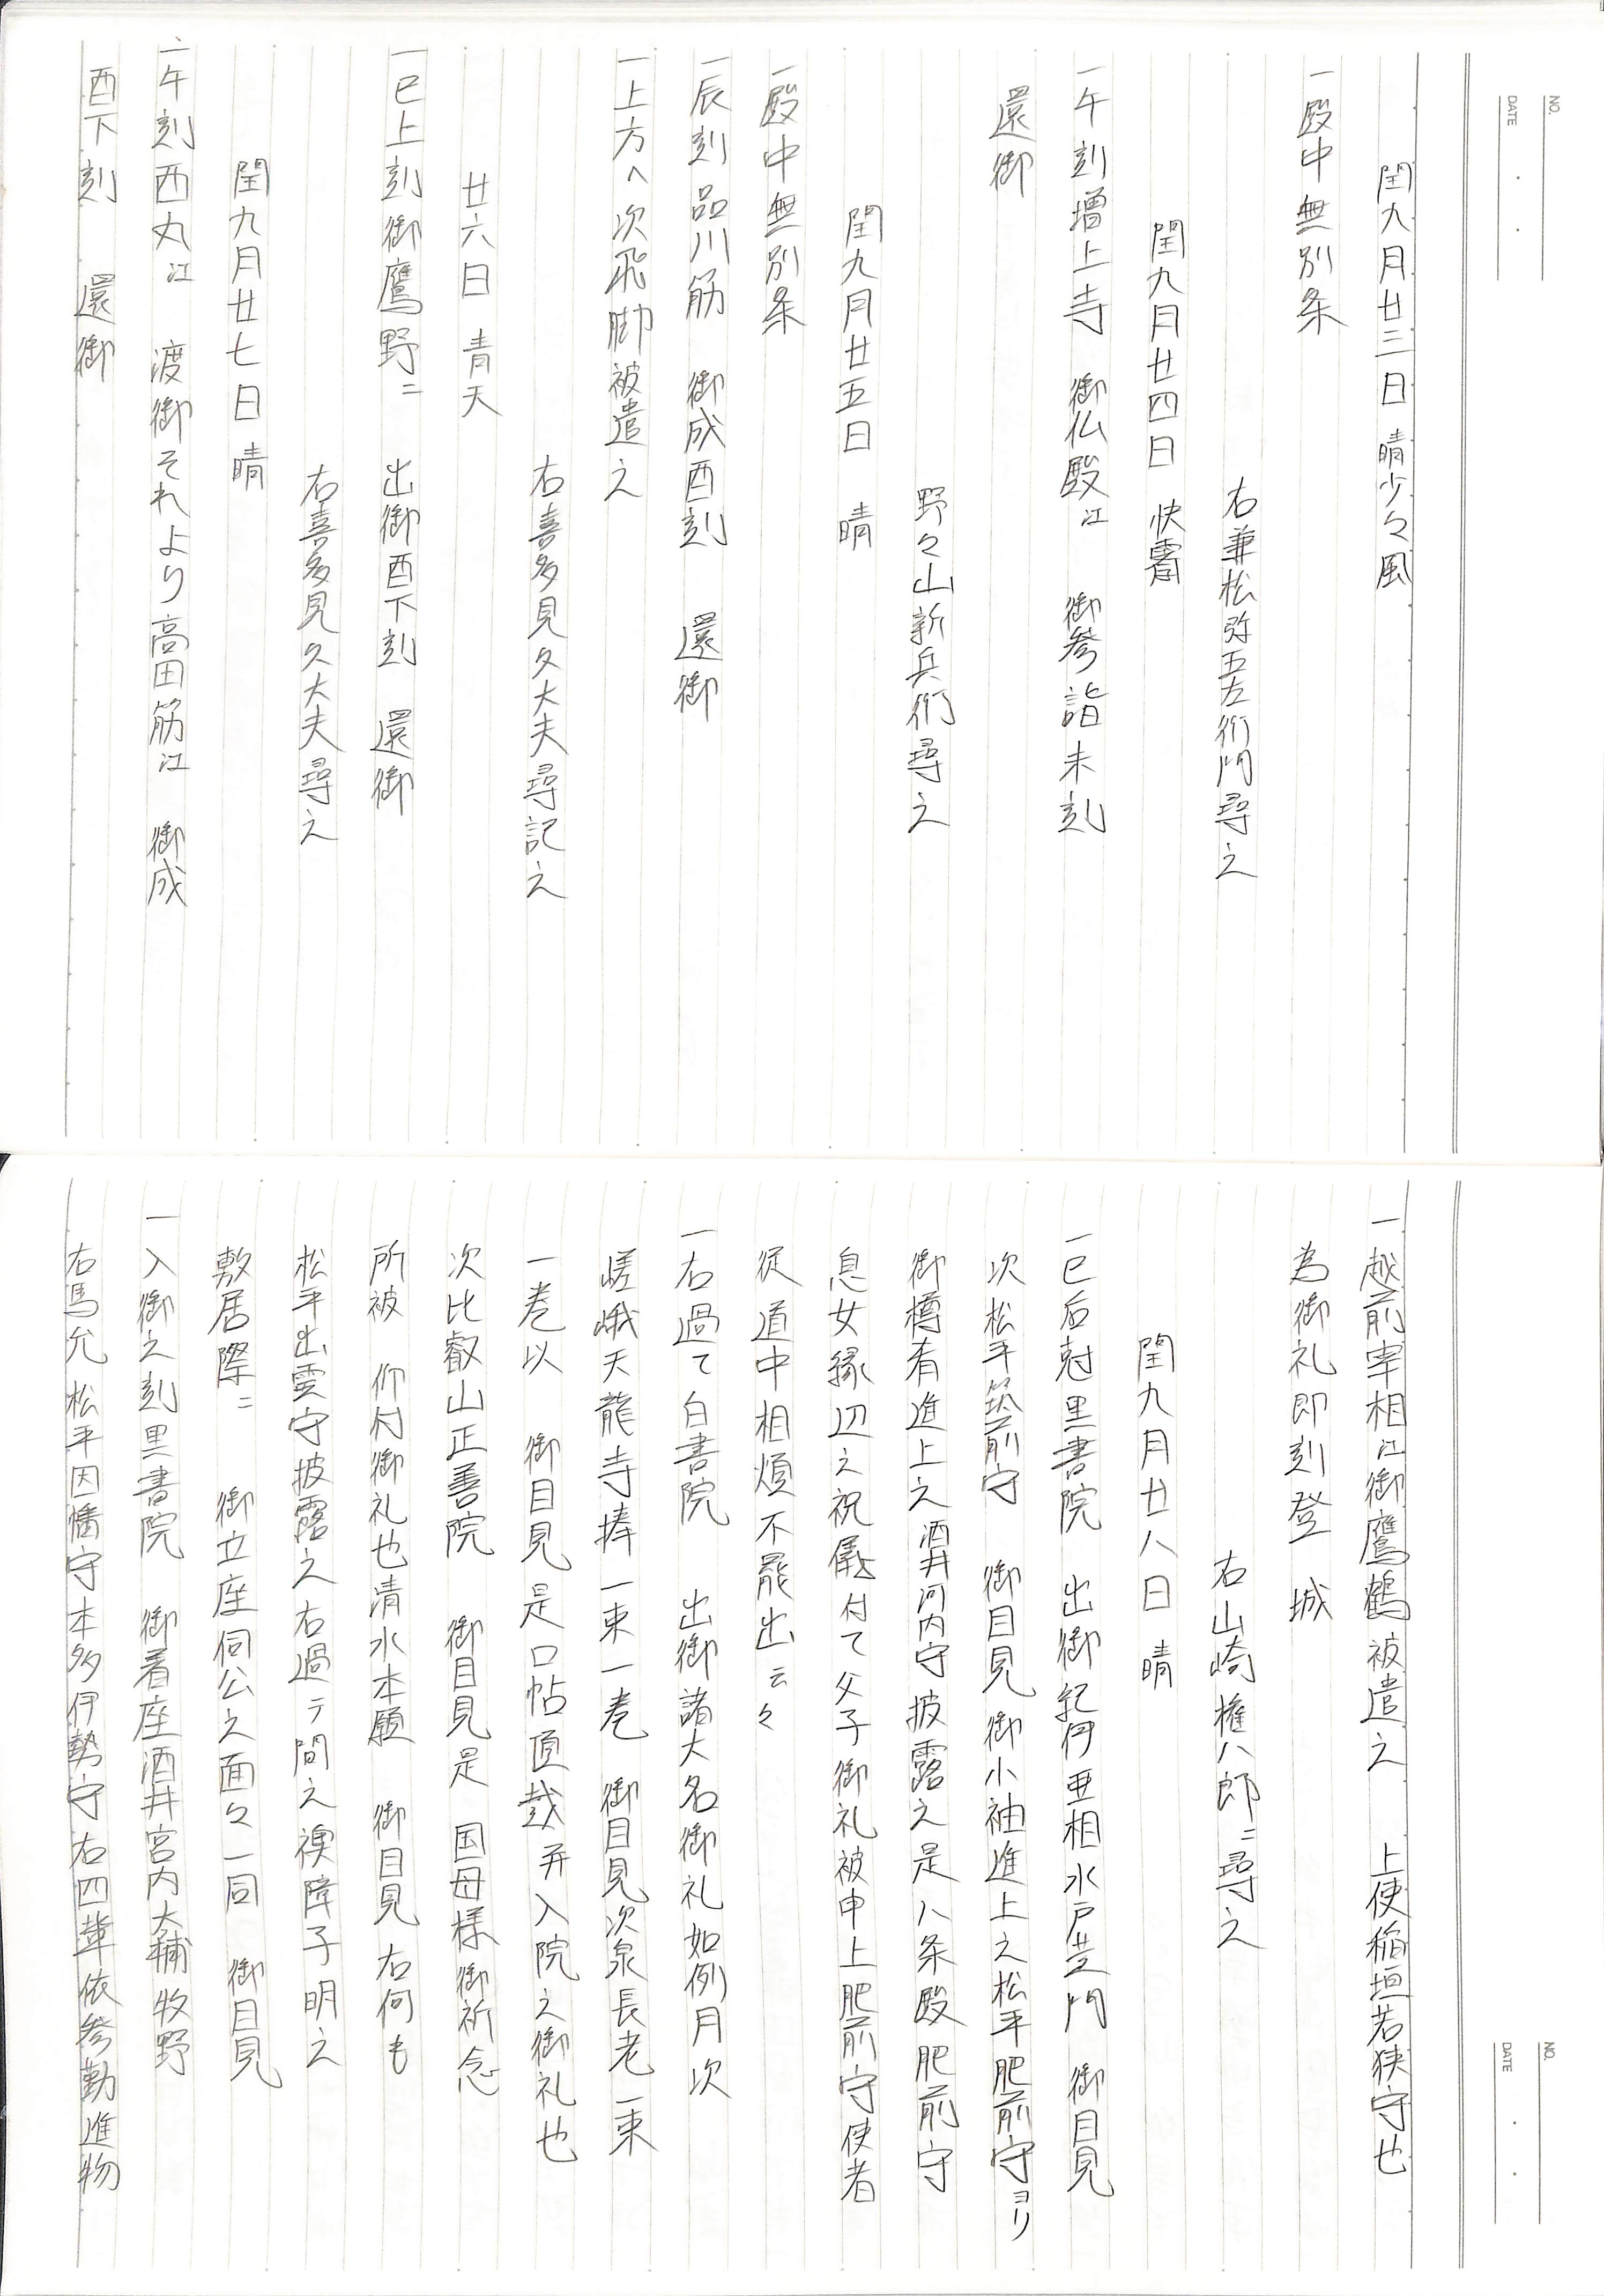 NO.
DATE
閏九月廿三日 晴少々風
一殿中無別条
右兼松弥五左衛門尋之
閏九月廿四日 快霽
一午刻増上寺 御仏殿江 御参詣未刻
還御
野々山新兵衛尋之
閏九月廿五日 晴
一殿中無別条
一辰刻品川筋 御成酉刻 還御
一上方へ次飛脚被遣之
右喜多見久大夫尋記之
廿六日 青天
一巳上刻御鷹野ニ 出御酉下刻 還御
右喜多見久大夫尋之
閏九月廿七日 晴
一午刻西丸江 渡御それより高田筋江 御成
酉下刻 還御
NO.
DATE
一越前宰相江御鷹鶴被遣之 上使稲垣若狭守也
為御礼即刻登 城
右山崎権八郎ニ尋之
閏九月廿八日 晴
一巳后尅黒書院 出御紀伊亜相水戸黄門 御目見
次松平筑前守 御目見御小袖進上之松平肥前守ヨリ
御樽肴進上之酒井河内守披露之是八条殿肥前守
息女縁辺之祝儀付て父子御礼被申上肥前守使者
従道中相煩不罷出云々
一右過て白書院 出御諸大名御礼如例月次
嵯峨天龍寺捧一束一巻 御目見次泉長老一束
一巻以 御目見是口帖頂戴并入院之御礼也
次比叡山正善院 御目見是 国母様御祈念
所被 仰付御礼也清水本願 御目見右何も
松平出雲守披露之右過テ間之襖障子明之
敷居際ニ 御立座伺公之面々一同 御目見
一入御之刻黒書院 御着座酒井宮内大輔牧野
右馬允松平因幡守本多伊勢守右四輩依参勤進物